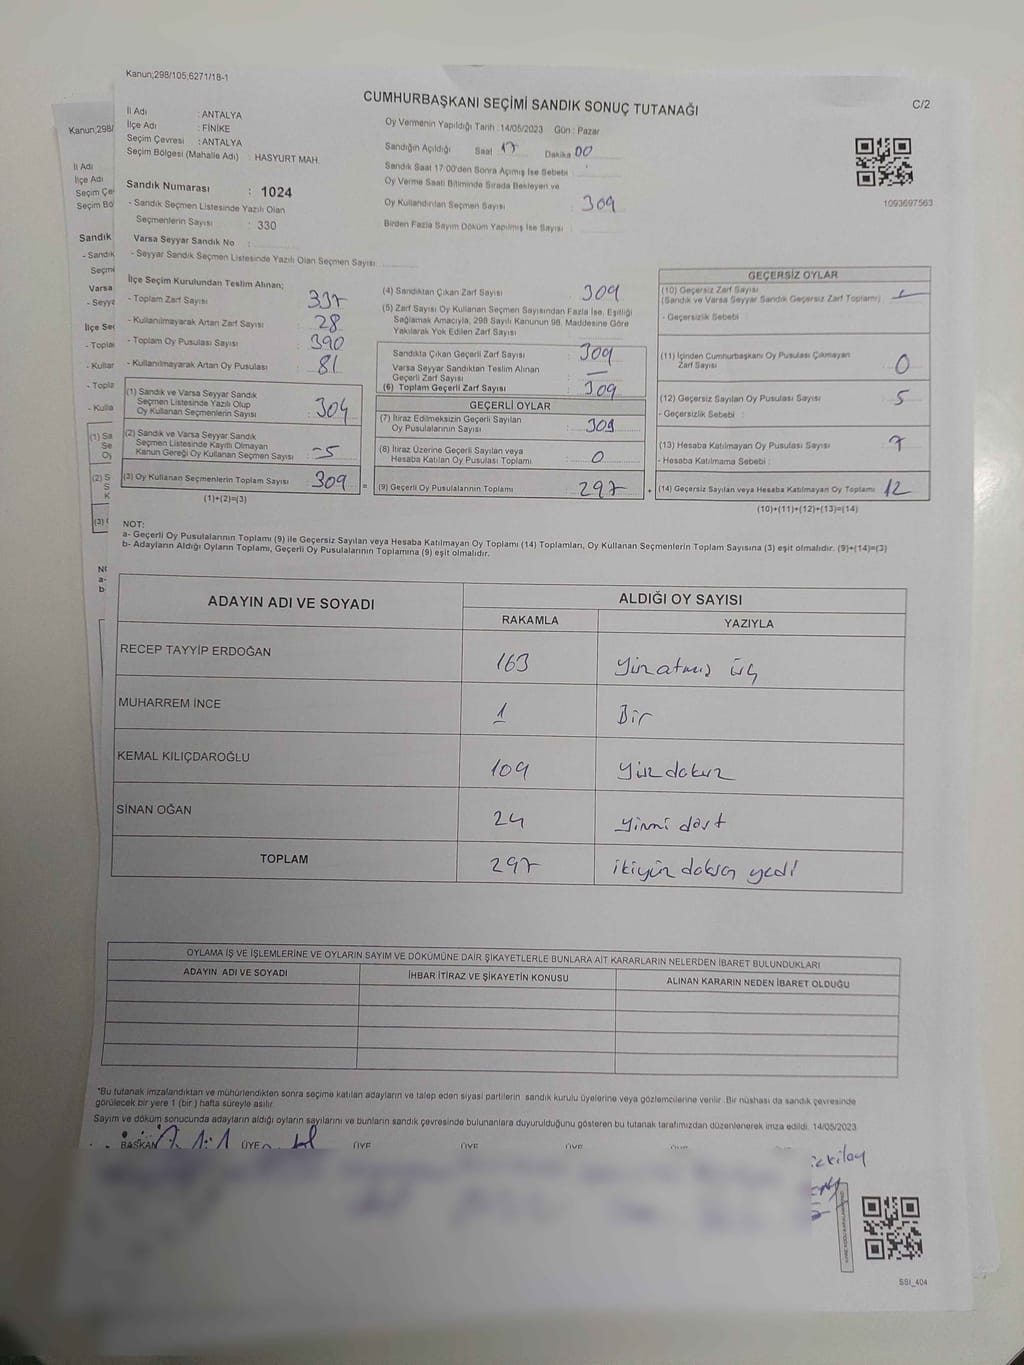 Kanun;298/105;6271/18-1
CUMHURBAŞKANI SEÇİMİ SANDIK SONUÇ TUTANAĞI
C/2
İli Adı : ANTALYA
İlçe Adı : FİNİKE
Seçim Çevresi : ANTALYA
Seçim Bölgesi (Mahalle Adı) : HASYURT MAH.
Sandık Numarası : 1024
- Sandık Seçmen Listesinde Yazılı Olan
Seçmenlerin Sayısı : 330
Varsa Seyyar Sandık No :
- Seyyar Sandık Seçmen Listesinde Yazılı Olan Seçmen Sayısı
Oy Vermenin Yapıldığı Tarih : 14/05/2023 Gün : Pazar
Sandığın Açıldığı Saat 17 Dakika 00
Sandık Saat 17:00'den Sonra Açımış İse Sebebi :
Oy Verme Saati Bitiminde Sırada Bekleyen ve
Oy Kullandırılan Seçmen Sayısı : 309
Birden Fazla Sayım Döküm Yapılmış İse Sayısı :
1093697563
Kanun;298/
İli Adı
İlçe Adı
Seçim Çe
Seçim Bö
Sandık
- Sandık
Seçme
Varsa
- Seyya
İlçe Seç
- Topla
- Kullar
- Topla
- Kulla
İlçe Seçim Kurulundan Teslim Alınan;
- Toplam Zarf Sayısı : 337
- Kullanılmayarak Artan Zarf Sayısı : 28
- Toplam Oy Pusulası Sayısı : 390
- Kullanılmayarak Artan Oy Pusulası : 81
(1) Sandık ve Varsa Seyyar Sandık
Seçmen Listesinde Yazılı Olup
Oy Kullanan Seçmenlerin Sayısı : 304
(2) Sandık ve Varsa Seyyar Sandık
Seçmen Listesinde Kayıtlı Olmayan
Kanun Gereği Oy Kullanan Seçmen Sayısı : -5
(3) Oy Kullanan Seçmenlerin Toplam Sayısı : 309
(1)+(2)=(3)
(4) Sandıktan Çıkan Zarf Sayısı : 309
(5) Zarf Sayısı Oy Kullanan Seçmen Sayısından Fazla İse, Eşitliği
Sağlamak Amacıyla, 298 Sayılı Kanunun 98. Maddesine Göre
Yakılarak Yok Edilen Zarf Sayısı :
Sandıkta Çıkan Geçerli Zarf Sayısı : 309
Varsa Seyyar Sandıktan Teslim Alınan
Geçerli Zarf Sayısı : —
(6) Toplam Geçerli Zarf Sayısı : 309
GEÇERLİ OYLAR
(7) İtiraz Edilmeksizin Geçerli Sayılan
Oy Pusulalarının Sayısı : 309
(8) İtiraz Üzerine Geçerli Sayılan veya
Hesaba Katılan Oy Pusulası Toplamı : 0
= (9) Geçerli Oy Pusulalarının Toplamı : 297 +
GEÇERSİZ OYLAR
(10) Geçersiz Zarf Sayısı
(Sandık ve Varsa Seyyar Sandık Geçersiz Zarf Toplamı) :
- Geçersizlik Sebebi :
(11) İçinden Cumhurbaşkanı Oy Pusulası Çıkmayan
Zarf Sayısı : 0
(12) Geçersiz Sayılan Oy Pusulası Sayısı : 5
- Geçersizlik Sebebi :
(13) Hesaba Katılmayan Oy Pusulası Sayısı : 7
- Hesaba Katılmama Sebebi :
(14) Geçersiz Sayılan veya Hesaba Katılmayan Oy Toplamı : 12
(10)+(11)+(12)+(13)=(14)
NOT:
a- Geçerli Oy Pusulalarının Toplamı (9) ile Geçersiz Sayılan veya Hesaba Katılmayan Oy Toplamı (14) Toplamları, Oy Kullanan Seçmenlerin Toplam Sayısına (3) eşit olmalıdır. (9)+(14)=(3)
b- Adayların Aldığı Oyların Toplamı, Geçerli Oy Pusulalarının Toplamına (9) eşit olmalıdır.
ADAYIN ADI VE SOYADI ALDIĞI OY SAYISI
RAKAMLA YAZIYLA
RECEP TAYYİP ERDOĞAN 163 Yüzatmış üç
MUHARREM İNCE 1 Bir
KEMAL KILIÇDAROĞLU 109 Yüz dokuz
SİNAN OĞAN 24 Yirmi dört
TOPLAM 297 ikiyüz doksan yedi
OYLAMA İŞ VE İŞLEMLERİNE VE OYLARIN SAYIM VE DÖKÜMÜNE DAİR ŞİKAYETLERLE BUNLARA AİT KARARLARIN NELERDEN İBARET BULUNDUKLARI
ADAYIN ADI VE SOYADI İHBAR İTİRAZ VE ŞİKAYETİN KONUSU ALINAN KARARIN NEDEN İBARET OLDUĞU
*Bu tutanak imzalandıktan ve mühürlendikten sonra seçime katılan adayların ve talep eden siyasi partilerin sandık kurulu üyelerine veya gözlemcilerine verilir. Bir nüshası da sandık çevresinde
görülecek bir yere 1 (bir ) hafta süreyle asılır.
Sayım ve döküm sonucunda adayların aldığı oyların sayılarını ve bunların sandık çevresinde bulunanlara duyurulduğunu gösteren bu tutanak tarafımızdan düzenlenerek imza edildi. 14/05/2023
BAŞKAN ÜYE ÜYE ÜYE ÜYE ÜYE
SSI_404